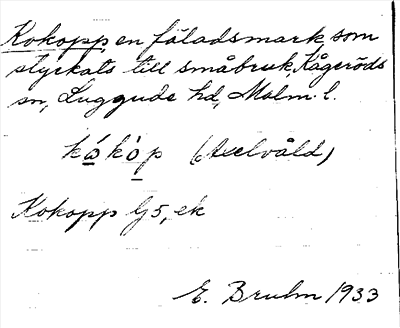 Kokopp, en fäladsmark som
styckats till småbruk, Kågeröds
sn, Luggude hd, Malm. l.
kók̀o̱p (Axelvåld)
Kokopp Gj 5, ek
E. Bruhn 1933